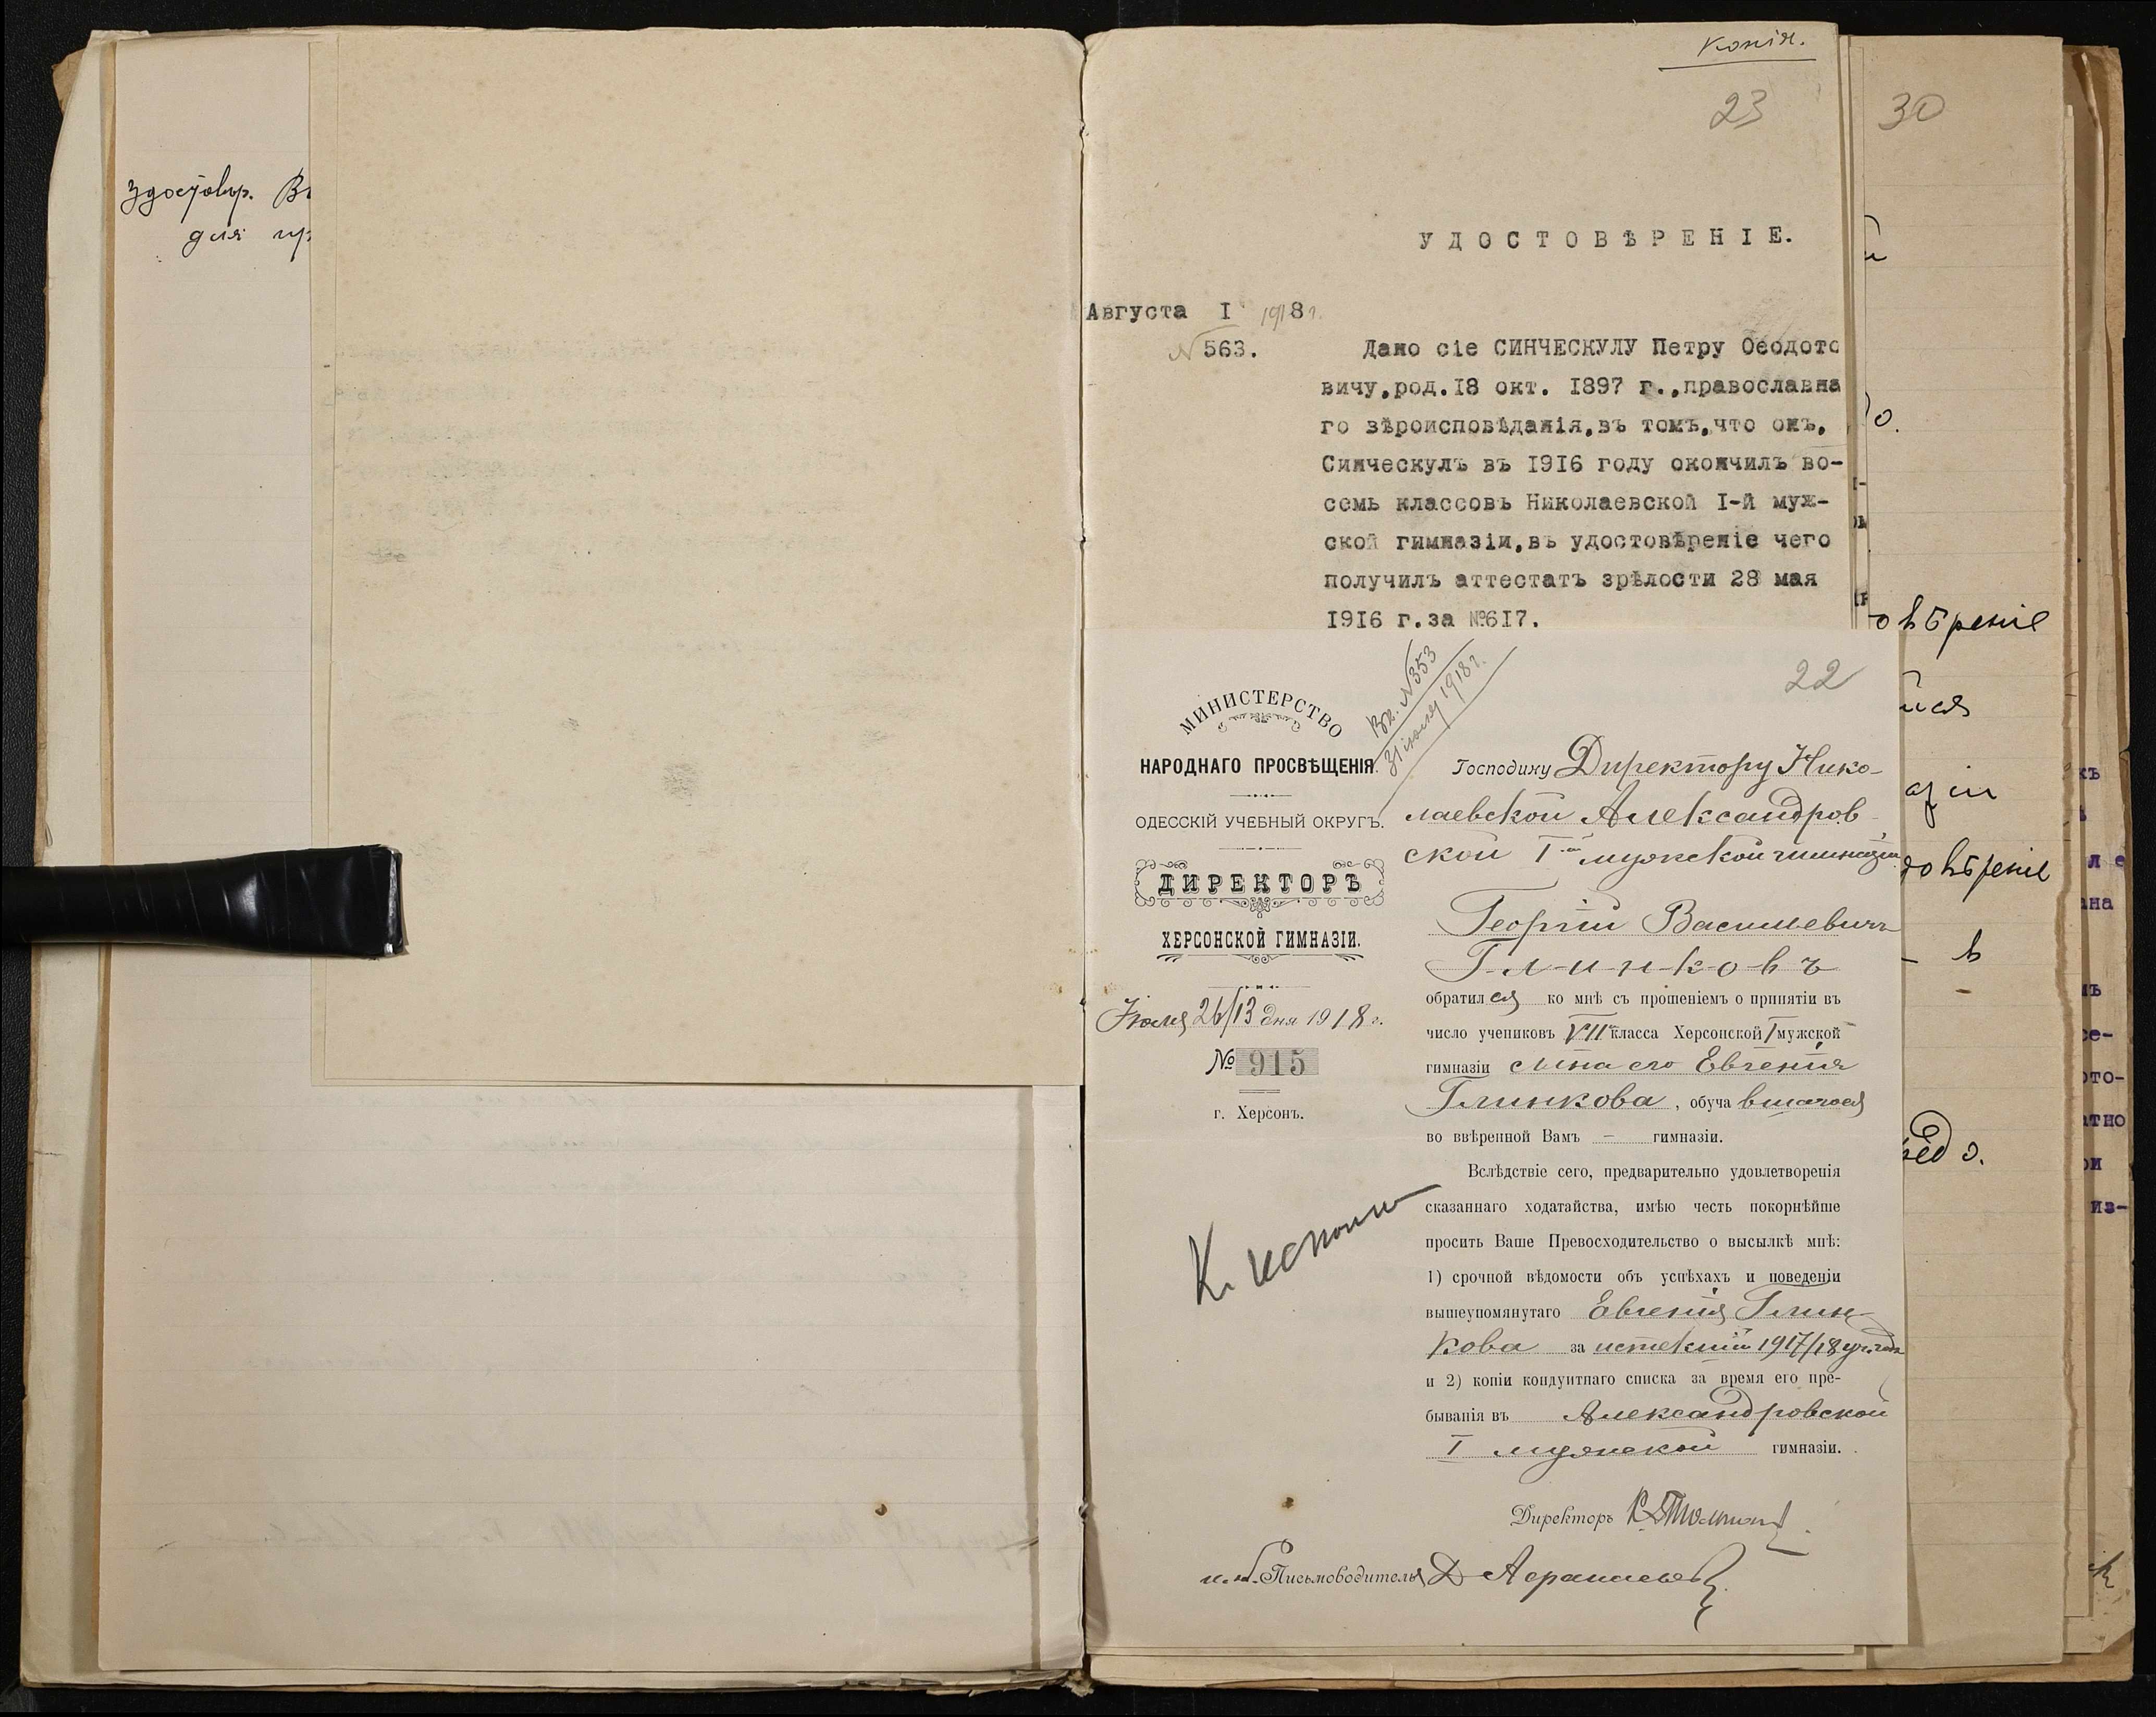 для
копія.
23
30
УДОСТОВѢРЕНІЕ.
Августа I 1918 г.
№ 563.
Дано сіе СИНЧЕСКУЛУ Петру Ѳеодото
вичу,род.18 окт. 1897 г.,православна
го вѣроисповѣданія,въ томъ,что онъ,
Синческулъ въ 1916 году окончилъ во-
семь классовъ Николаевской I-й муж-
ской гимназіи,въ удостовѣреніе чего
получилъ аттестатъ зрѣлости 28 мая
1916 г.за №617.
Вх. №353
31 іюля 1918 г.
22
МИНИСТЕРСТВО
НАРОДНАГО ПРОСВѢЩЕНІЯ.
ОДЕССКІЙ УЧЕБНЫЙ ОКРУГЪ.
ДИРЕКТОРЪ
ХЕРСОНСКОЙ ГИМНАЗІИ.
Іюля 26/13 дня 1918 г.
№ 915
г. Херсонъ.
Господину Директору Нико-
лаевской Александров-
ской I-ой мужской гимназіи
Георгій Васильевичъ
Г-л-и-н-к-о-в-ъ
обратился ко мнѣ съ прошеніемъ о принятіи въ
число учениковъ VII класса Херсонской I мужской
гимназіи сына его Евгенія
Глинкова, обучавшагося
во ввѣренной Вамъ — гимназіи.
Вслѣдствіе сего, предварительно удовлетворенія
сказаннаго ходатайства, имѣю честь покорнѣйше
просить Ваше Превосходительство о высылкѣ мнѣ:
1) срочной вѣдомости объ успѣхахъ и поведеніи
вышеупомянутаго Евгенія Глин-
кова за истекшій 1917/18 уч. годъ
и 2) копіи кондуитнаго списка за время его пре-
быванія въ Александровской
I мужской гимназіи.
К. исполн
Директоръ
и. об. Письмоводителя